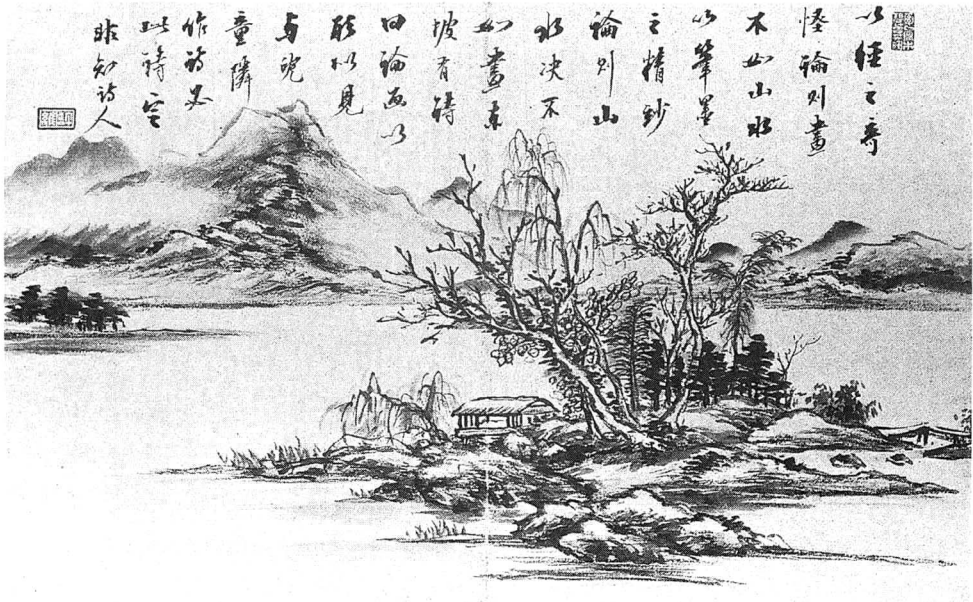 以徑之奇
怪論則畫
不如山水
以筆墨
之精妙
論則山
水決不
如畫東
坡有詩
曰論画以
形似見
与児
童隣
作詩必
此詩定
非知詩人